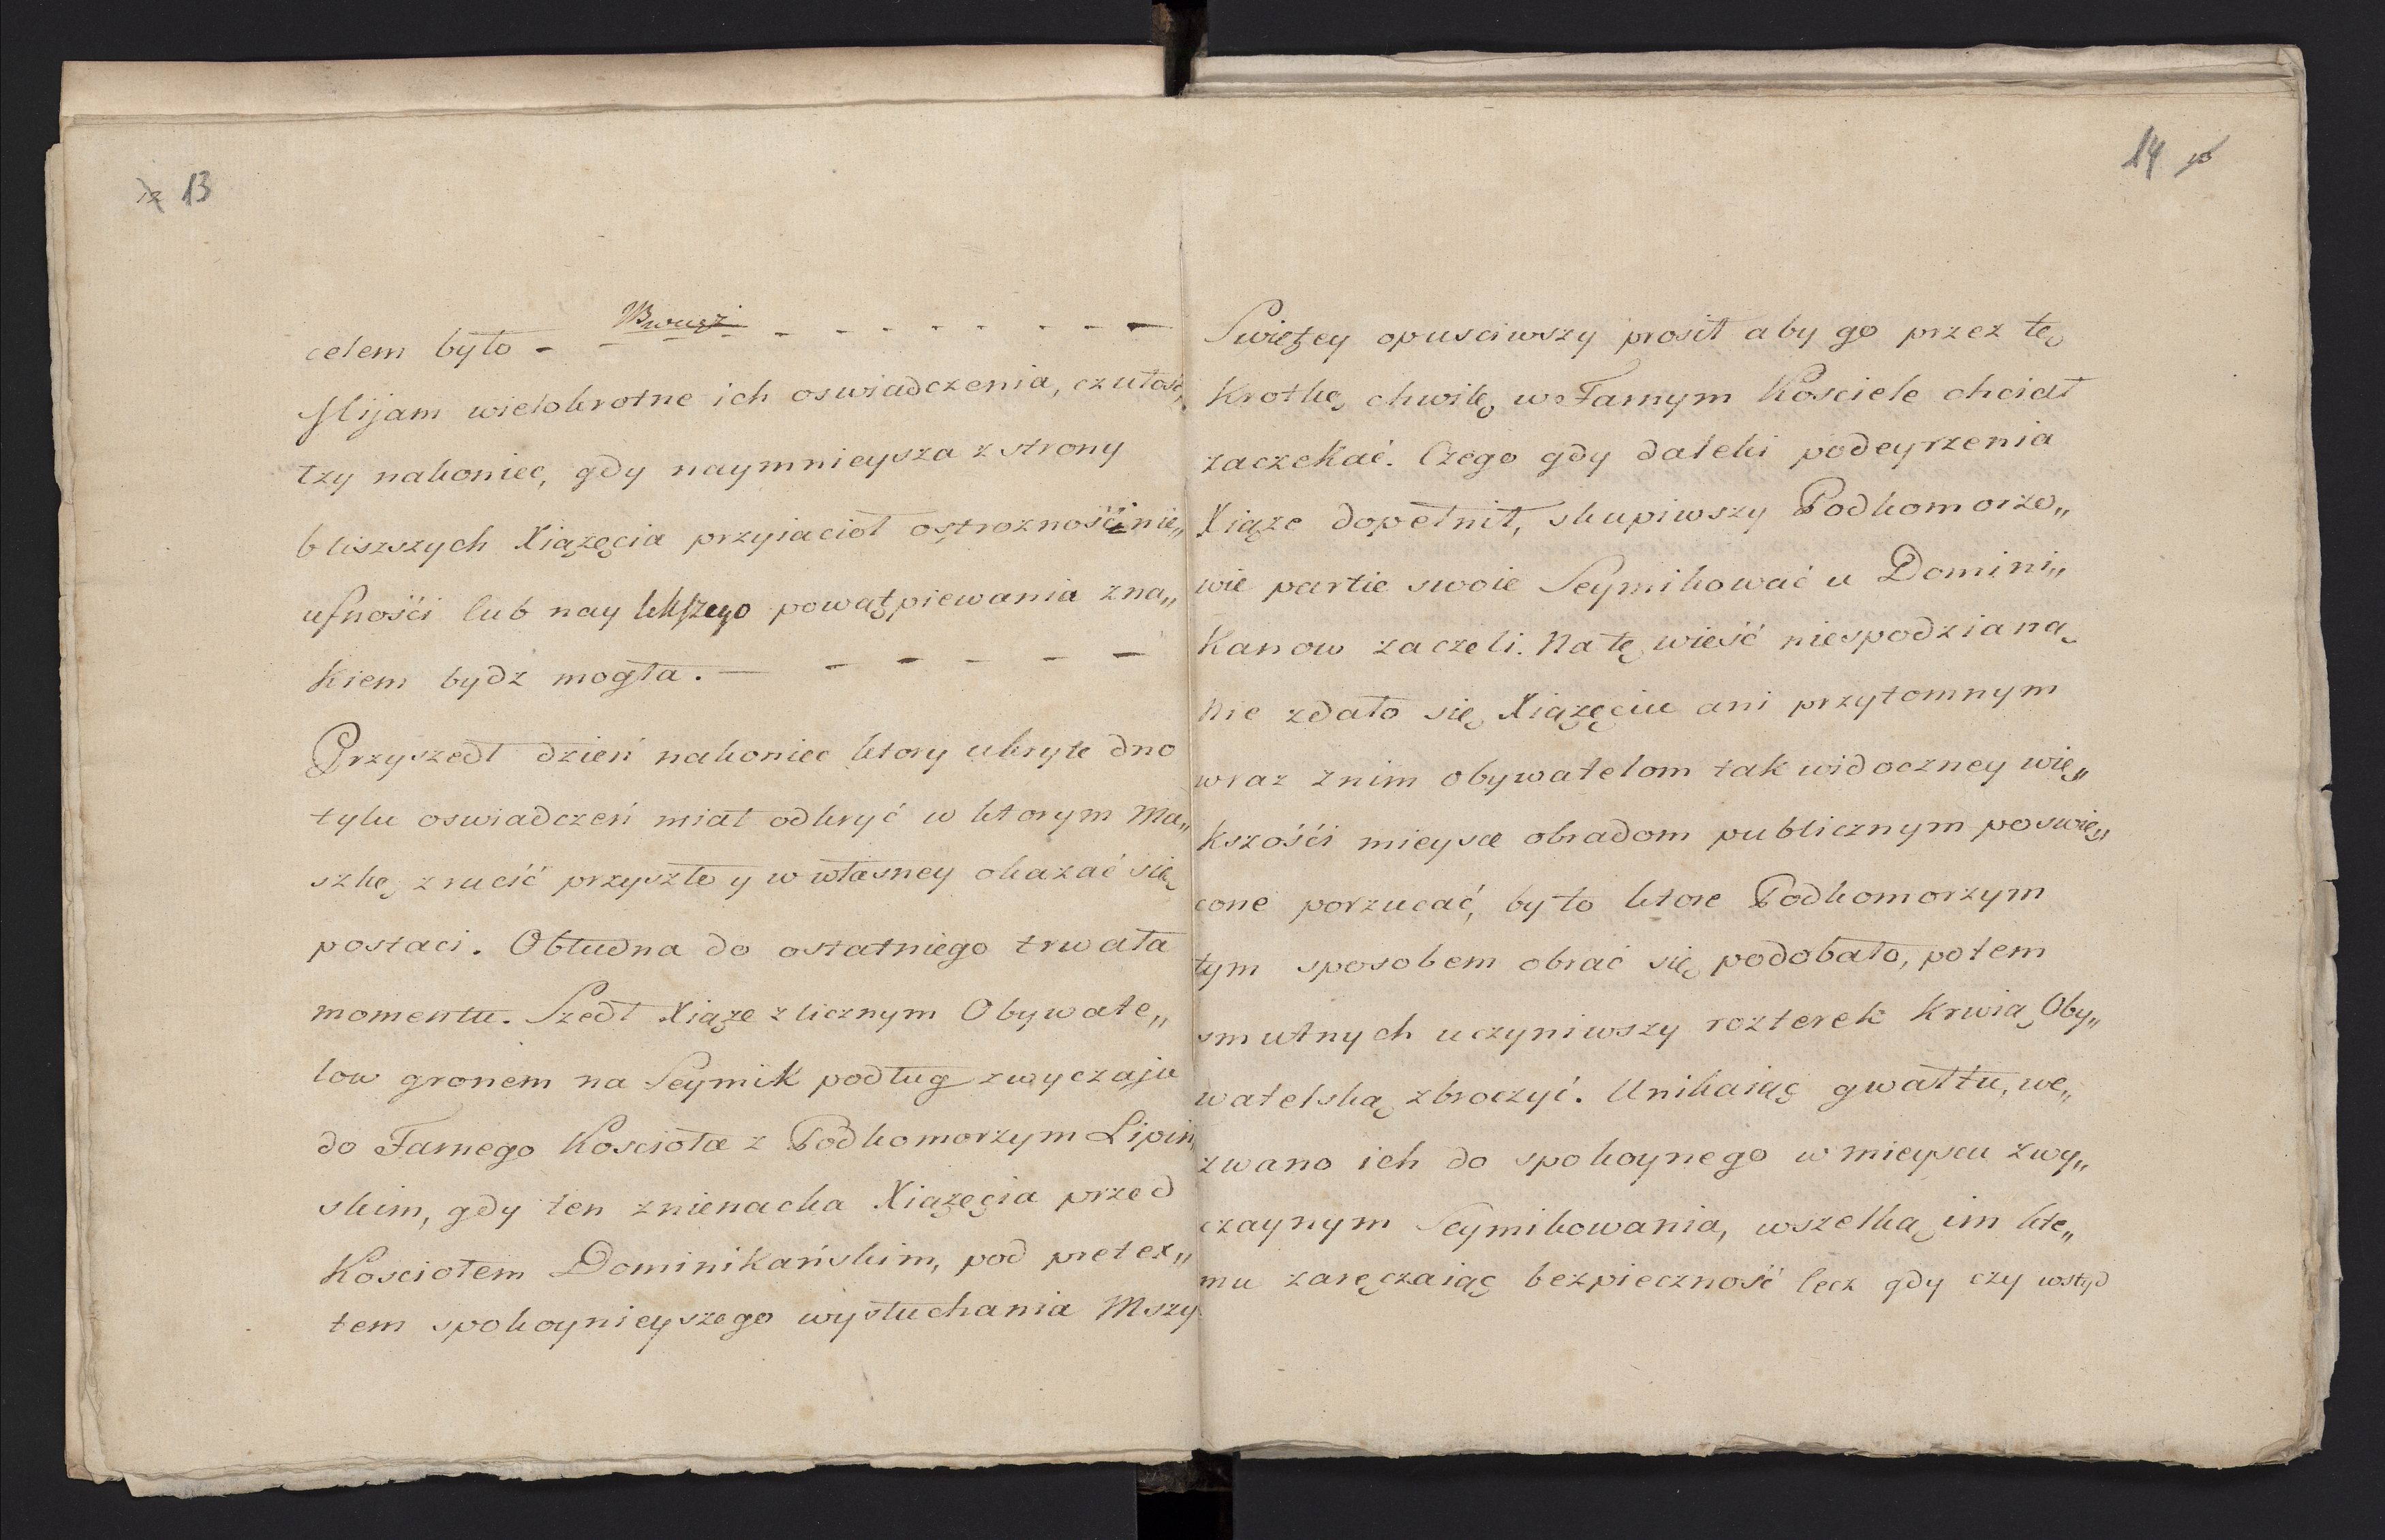 13
celem było - - - - - - - - - - - -
Mijam wielokrotne ich oswiadczenia, czułość,
łzy nakoniec, gdy naymnieysza z strony
bliszszych Xiążęcia przyiacioł ostroznośći nie„
ufnośći lub nay lekszego powątpiewania zna„
kiem bydz mogła. — - - - - —
Przyszedł dzień nakoniec ktory ukryte dno
tylu oswiadczeń miał odkryć w ktorym Ma„
szkę zrucić przyszło y w własney okazać się
postaci. Obłudna do ostatniego trwała
momentu. Szedł Xiąże z licznym Obywate„
low gronem na Seymik podług zwyczaju
do Farnego Kościoła z Podkomorzym Lipiń„
skim, gdy ten znienacka Xiążęcia przed
Kosciołem Dominikańskim, pod pretex„
tem spokoynieyszego wysłuchania Mszy
14
Swiętey opusciwszy prosił aby go przez tę
krotkę chwilę w Farnym Kosciele chciał
zaczekać. Czego gdy daleki podeyrzenia
Xiąże dopełnił, skupiwszy Podkomorzo„
wie partie swoie Seymikować u Domini„
kanow zaczeli. Na tę wieść niespodzianą
nie zdało się Xiążęciu ani przytomnym
wraz z nim obywatelom tak widoczney wię„
kszośći mieysce obradom publicznym poswię„
cone porzucać, było ktore Podkomorzym
tym sposobem obrać się podobało, potem
smutnych uczyniwszy rozterek krwią Oby„
watelską zbroczyć. Unikaiąc gwałtu, we„
zwano ich do spokoynego w mieyscu zwy„
czaynym Seymikowania, wszelką im kte„
mu zaręczaiąc bezpieczność lecz gdy czy wstyd